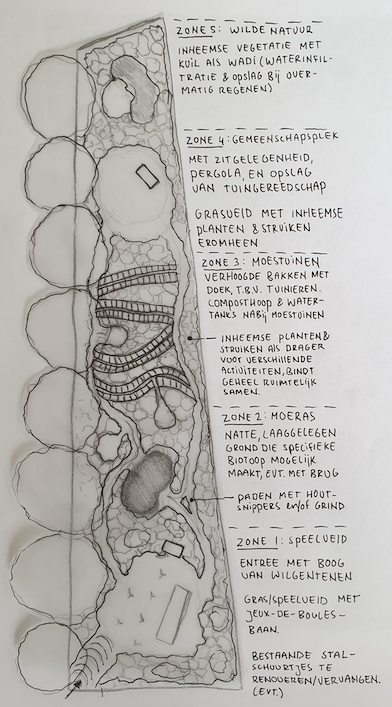 ZONE 5: WILDE NATUUR
INHEEMSE VEGETATIE MET
KUIL ALS WADI (WATERINFIL-
TRATIE & OPSLAG BIJ OVER-
MATIG REGENEN)
ZONE 4: GEMEENSCHAPSPLEK
MET ZITGELEGENHEID,
PERGOLA, EN OPSLAG
VAN TUINGEREEDSCHAP
GRASVELD MET INHEEMSE
PLANTEN & STRUIKEN
EROMHEEN
ZONE 3: MOESTUINEN
VERHOOGDE BAKKEN MET
DOEK, T.B.V. TUINIEREN.
COMPOSTHOOP & WATER-
TANKS NABIJ MOESTUINEN
INHEEMSE PLANTEN &
STRUIKEN ALS DRAGER
VOOR VERSCHILLENDE
ACTIVITEITEN, BINDT
GEHEEL RUIMTELIJK
SAMEN.
ZONE 2: MOERAS
NATTE, LAAGGELEGEN
GROND DIE SPECIFIEKE
BIOTOOP MOGELIJK
MAAKT, EVT. MET BRUG
PADEN MET HOUT-
SNIPPERS en/of GRIND
ZONE 1: SPEELVELD
ENTREE MET BOOG
VAN WILGENTENEN
GRAS/SPEELVELD MET
JEUX-DE-BOULES-
BAAN.
BESTAANDE STAL-
SCHUURTJES TE
RENOVEREN/VERVANGEN.
(EVT.)